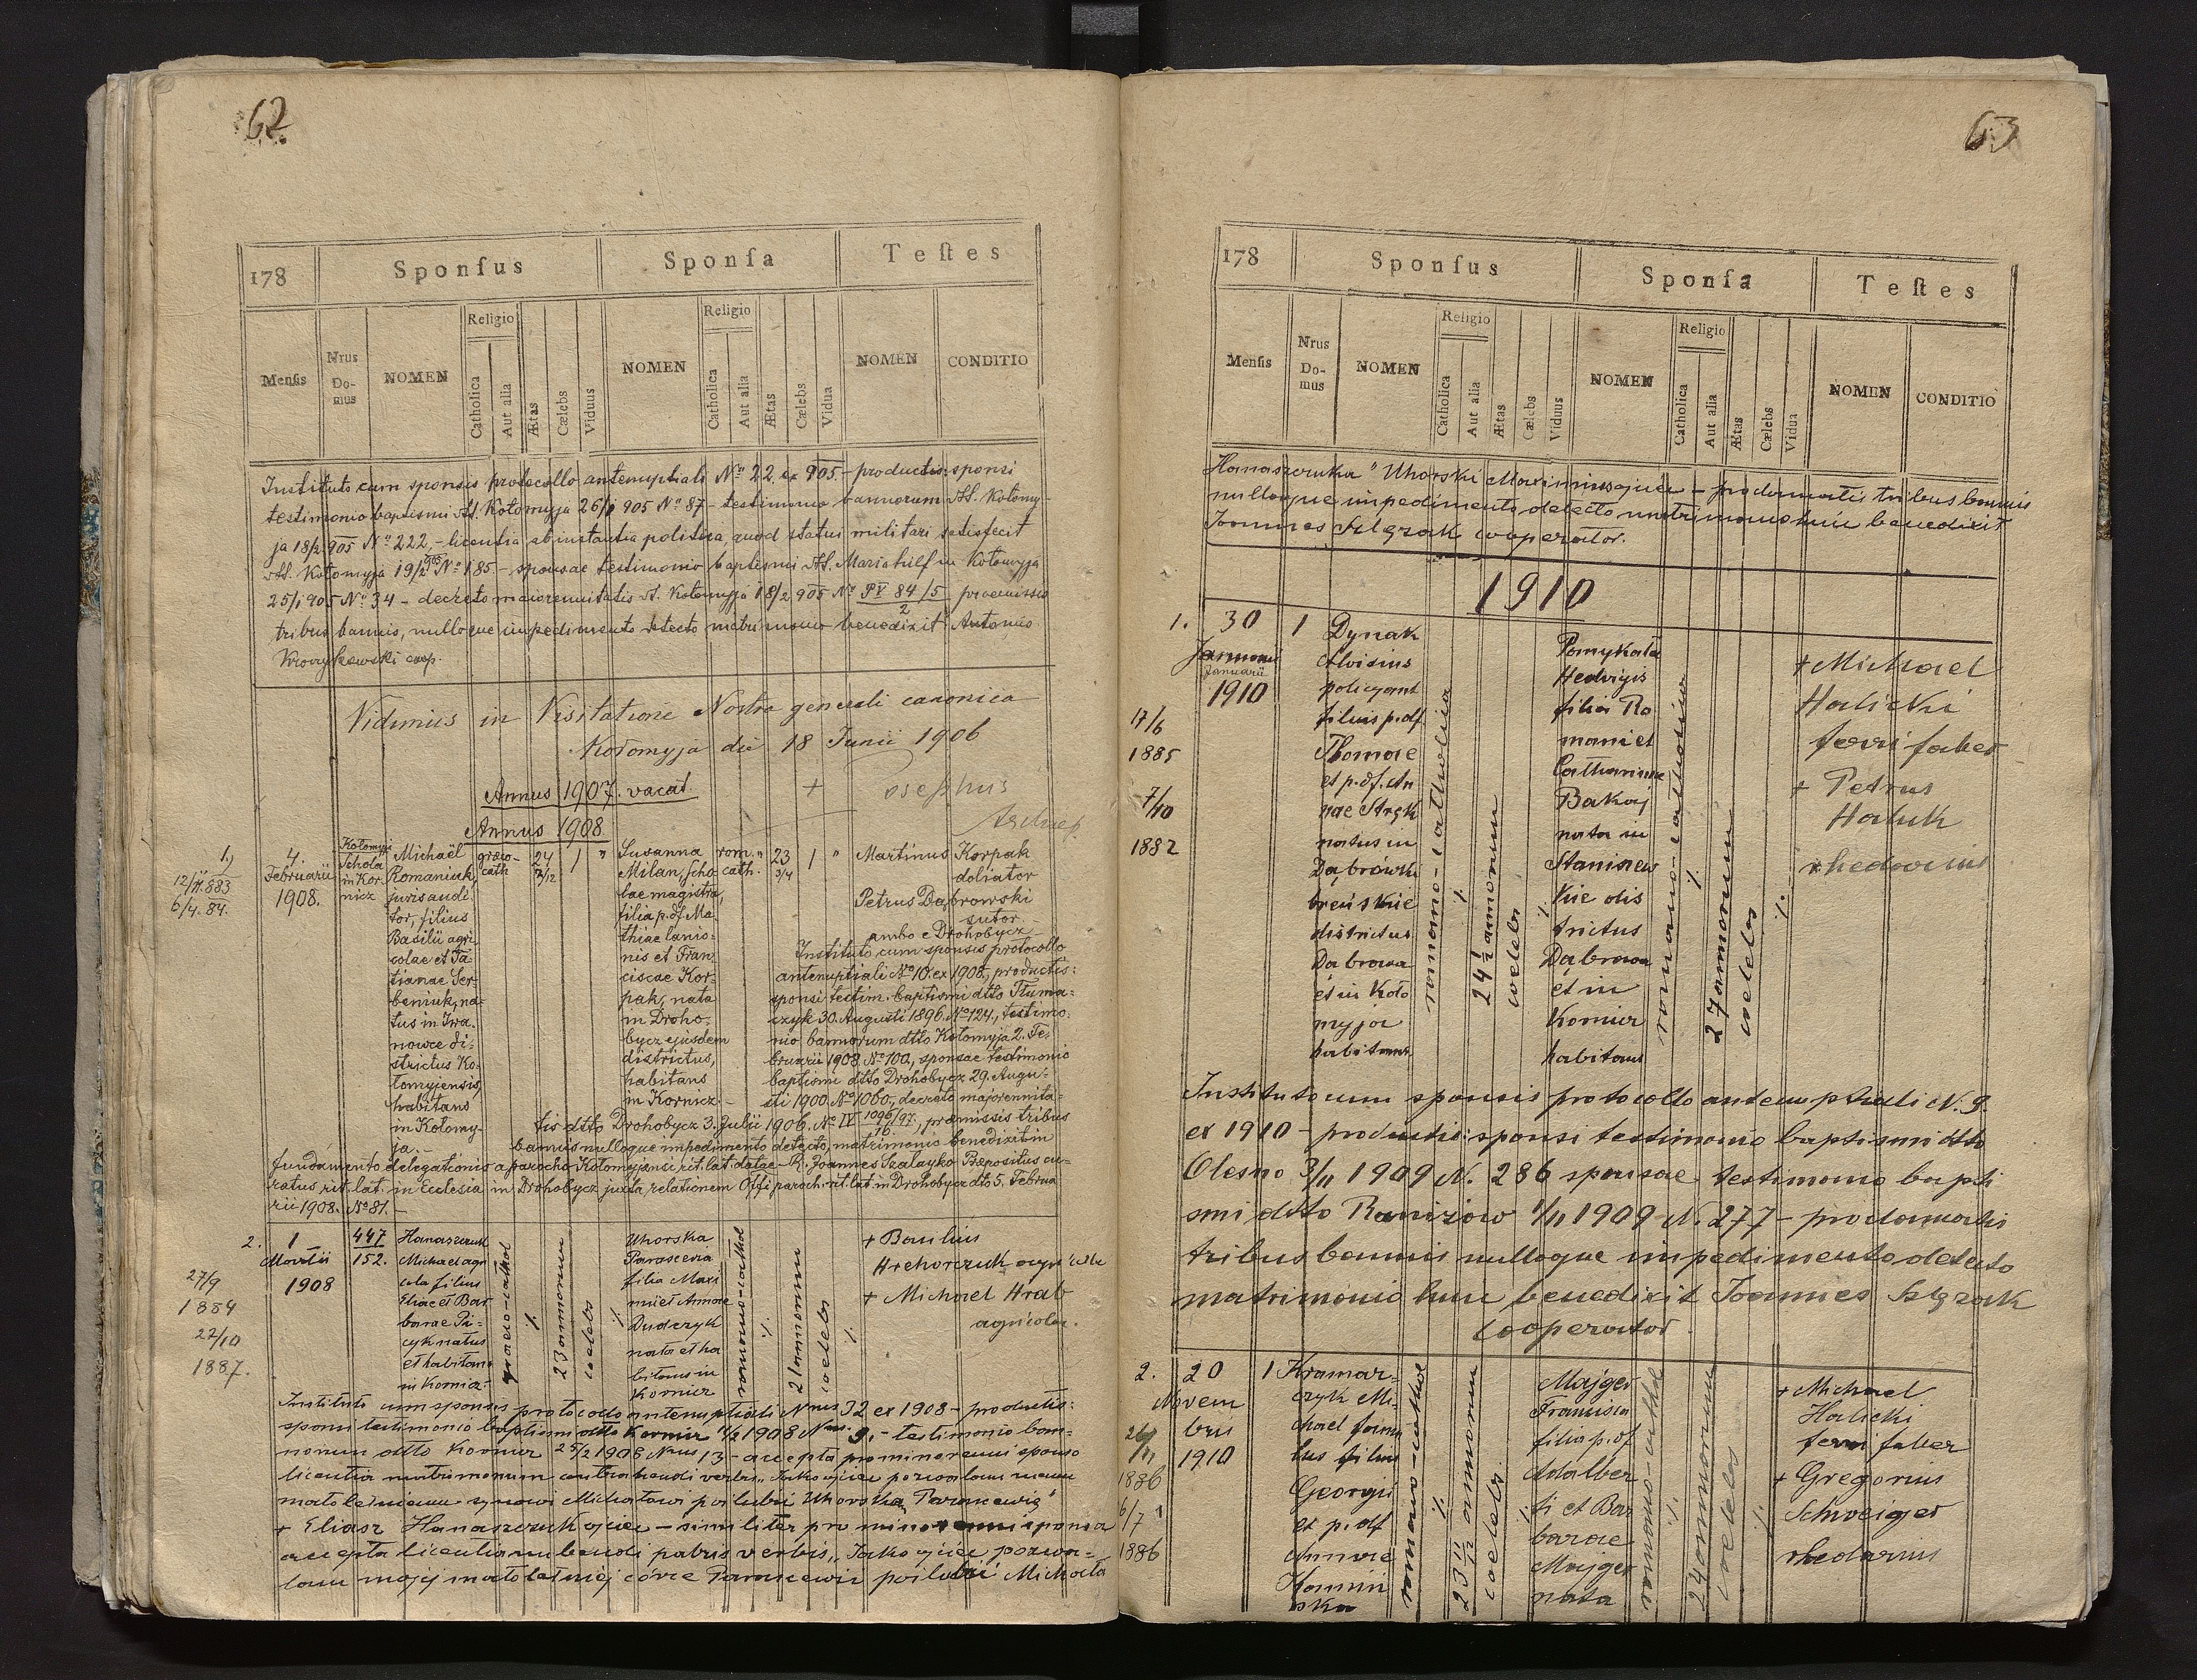 62.
178 Sponſus Sponſa Teſtes
Menſis Nrus Do-mus NOMEN Religio Catholica Aut alia Ætas Cælebs Viduus NOMEN Religio Catholica Aut alia Ætas Cælebs Vidua NOMEN CONDITIO
Instituto cum sponsis protocollo antenuptiali No 22 ex 905. - productis: sponsi
testimonio baptismi dd. Kołomyja 905 No 87 - testimonio bannorum dd. Kołomy-
ja 18/2 905 No 222, - licentia ab instantia politica, quod statui militari satisfecit
dd. Kołomyja 19/2 905 No 185. - sponsae testimonio baptismi dd. Mariahilf in Kołomyja
25/1 905 No 34 - decreto maiorennitatis d. Kołomyja 18/2 905 No PV 84/5 2 praemissis
tribus bannis, nulloque impedimento detecto matrimonio benedixit Antonius
coop.
Vidimus in Visitatione Nostra generali canonica
Kołomyja die 18 Junii 1906
+ Josephus
Annus 1907. vacat.
Archiep.
Annus 1908.
1.
12/II. 883
6/4. 84.
4.
Februarii
1908.
Kołomyja
Schola
in Kor-
nicz
Michaël
Romaniuk,
juris audi-
tor, filius
Basilii agri-
colae et Ta-
tianae Ser-
beniuk, na-
tus in Iwa-
nowce di-
strictus Ko-
łomyjensis,
habitans
in Kołomy-
ja. -
græco-
cath
24
2/12
1
"
Susanna
Milan, scho-
lae magistra,
filia p. df. Ma-
thiae lanio-
nis et Fran-
ciscae Kor-
pak, nata
in Droho-
bycz ejusdem
districtus,
habitans
in Kornicz. -
rom.-
cath.
"
23
3/4
1
"
Martinus Korpak
doliator
Petrus Dąbrowski
sutor. -
ambo e Drohobycz
Instituto cum sponsis protocollo
antenuptiali No 10. ex 1908., productis:
sponsi testim. baptismi dtto Tłuma-
czyk 30. Augusti 1896. No 124., testimo-
nio bannorum dtto Kołomyja 2. Fe-
bruarii 1908. No 100., sponsae testimonio
baptismi dtto Drohobycz 29. Augu-
sti 1900. No 1060., decreto majorennita-
tis dtto Drohobycz 3. Julii 1906. No IV 1096/97 16, præmissis tribus
bannis nulloque impedimento detecto, matrimonio benedixit in
fundamento delegationis a parocho Kołomyjensi rit. lat. datae R. Joannes Szałayko Præpositus cu-
ratus rit. lat. in Ecclesia in Drohobycz juxta relationem Offi. paroch. rit. lat. in Drohobycz dto 5. Februa
rii 1908. No 81. -
2.
27/9
1884
22/10
1887.
1
Martii
1908
447
152.
Hanaszczuk
Michael agri
cola filius
Eliae et Bar
barae Pi-
cyk natus
et habitans
in Kornicz
graeco-cathol
./.
23 annorum
coelebs
./.
Uhorska
Parascevia
filia Maxi
mi et Annae
Dudczyk
nata et ha
bitans in
Kornicz
romano-cathol
./.
21 annorum
coelebs
./.
+ Basilius
Hrehorczuk agricola
+ Michael Hrab
agricola.
Instituto cum sponsis protocollo antenuptiali Nrus 12 ex 1908 - productis:
sponsi testimonio baptismi dtto Kornicz 11/2 1908 Nrus 9. - testimonio ban-
norum dtto Kornicz 25/2 1908 Nrus 13 - accepta pro minorenni sponso
licentia matrimonium contrahendi verbis „Jako ojciec pozwalam memu
małoletniemu synowi Michałowi poślubić Uhorską Paraskewię"
+ Eliasz Hanaszczuk ojciec - similiter pro minorenni sponsa
accepta licentia nubendi patris verbis „Jako ojciec pozwa-
lam mojej małoletniej córce Paraskewii poślubić Michała
63
178 Sponſus Sponſa Teſtes
Menſis Nrus Do-mus NOMEN Religio Catholica Aut alia Ætas Cælebs Viduus NOMEN Religio Catholica Aut alia Ætas Cælebs Vidua NOMEN CONDITIO
Hanaszczuka" Uhorski Maxim ojciec - proclamatis tribus bannis
nulloque impedimento detecto matrimonio huic benedixit
Joannes cooperator.
1910
1.
17/6
1885
7/10
1882
30
Januarii
1910
1
Dynak
Aloisius
policyant
filius p. df.
Thomae
et p. df. An
nae
natus in
Dąbrówki
breńskie
districtus
Dąbrowa
et in Koło
myja
habitans
romano-catholica
./.
24 annorum
coelebs
./.
Pomykała
Hedvigis
filia Ro
mani et
Catharinae
Bakaj
nata in
districtus
Dąbrowa
et in
Kornicz
habitans
romano-catholica
./.
27 annorum
coelebs
./.
+ Michael
Halicki
ferri faber
+ Petrus
Hałuk
rhedarius
Instituto cum sponsis protocollo antenuptiali N. 9.
ex 1910 - productis: sponsi testimonio baptismi dtto
Olesno 3/11 1909 N. 286 sponsae testimonio bapti
smi dtto Raniżów 1/11 1909 N. 277 - proclamatis
tribus bannis nulloque impedimento detecto
matrimonio huic benedixit Joannes
cooperator
2.
26/11
1886
6/7
1886
20
Novem
bris
1910
1
Kramar-
czyk Mi-
chael famu
lus filius
Georgii
et p. df
Annae
Kamin
ska
romano-cathol
./.
23 annorum
coelebs
./.
Majger
Francisca
filia p. df
Adalber
ti et Bar
barae
Majger
nata
romano-cathol
./.
24 annorum
coelebs
./.
+ Michael
Halicki
ferri faber
+ Gregorius
Schweiger
rhedarius